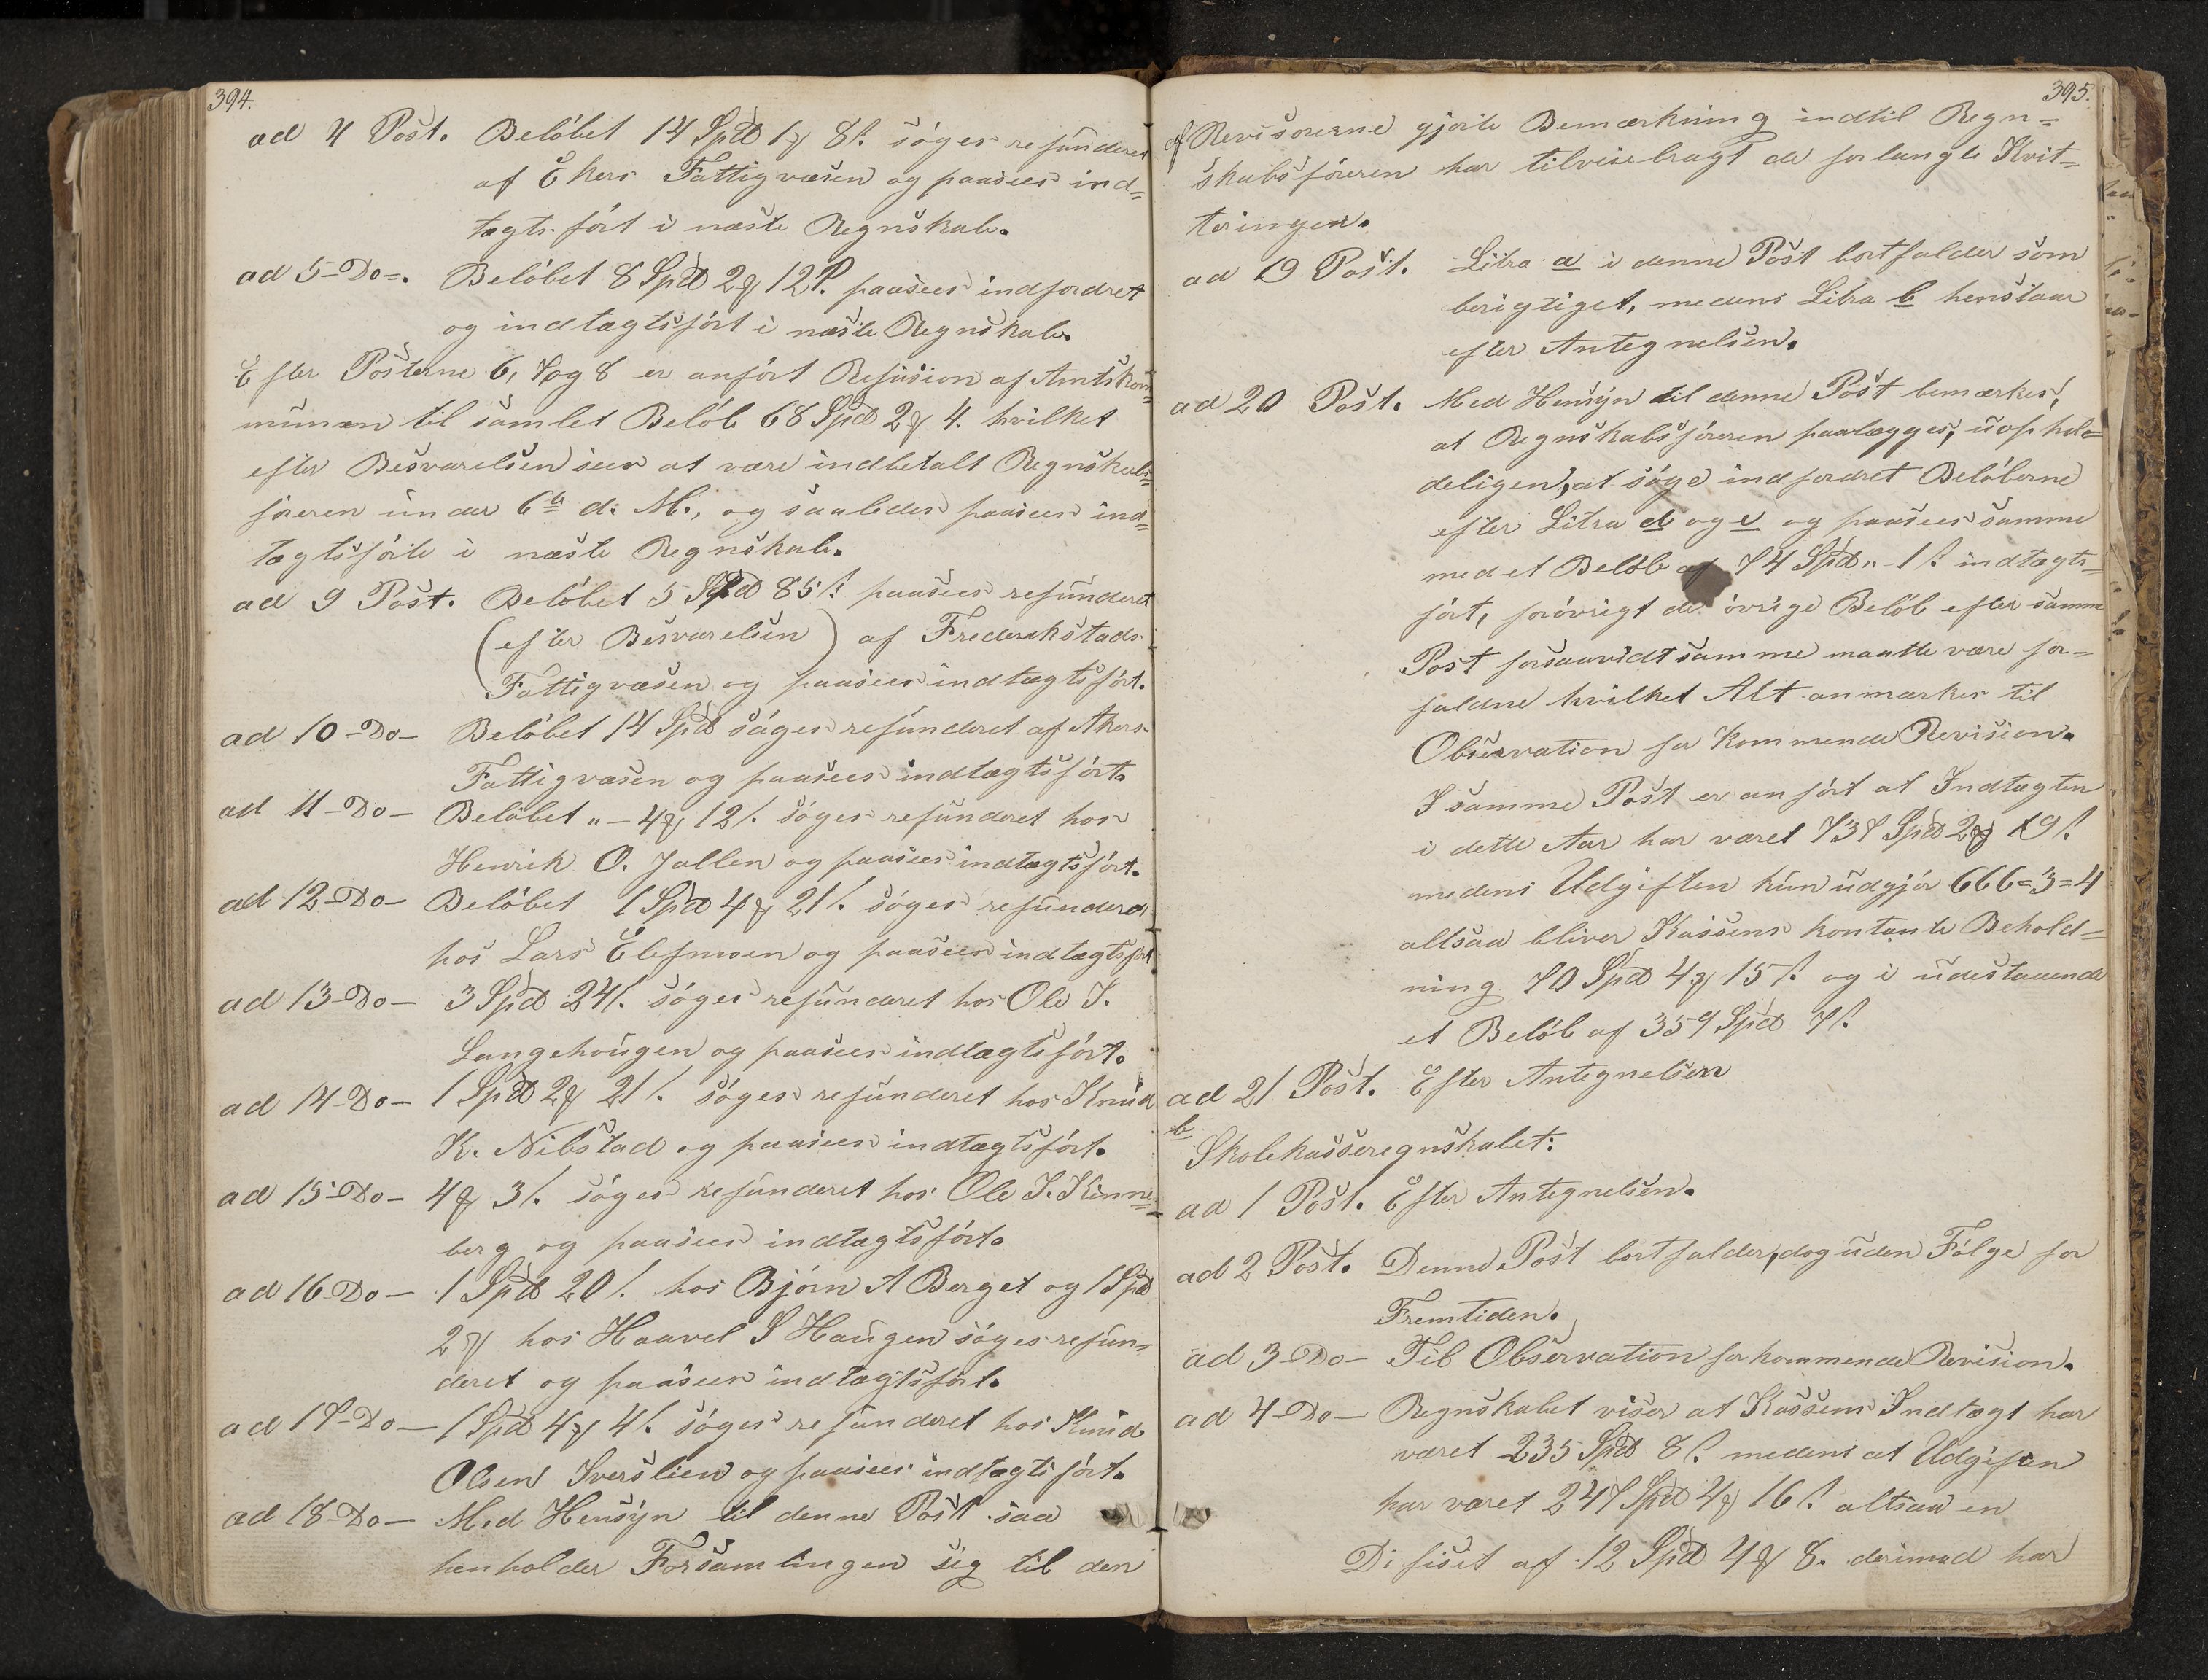 394.
ad 4 Post. Beløbet 14 Spd 1 ₰ 8 s. søges refunderet
af Ekers Fattigvæsen og paasees ind=
tægts ført i næste Regnskab.
ad 5 - Do -. Beløbet 8 Spd 2 ₰ 12 s. paasees indfordret
og indtægtsført i næste Regnskab.
Efter Posterne 6, 7 og 8 er anført Refusion af Amtskom=
munen til samlet Beløb 68 Spd 2 ₰ 4. hvilket
efter Besvarelsen sees at være indbetalt Regnskabs=
føreren under 6te d. M., og saaledes paasees ind=
tægtsførte i næste Regnskab.
ad 9 Post. Beløbet 5 Spd 85 s. paasees refunderet
(efter Besvarelsen) af Frederikstads
Fattigvæsen og paasees indtægtsført.
ad 10 - Do - Beløbet 14 Spd søges refunderet af Akers
Fattigvæsen og paasees indtægtsført.
ad 11 - Do - Beløbet " - 4 ₰ 12 s. søges refunderet hos
Henrik O. Jallen og paasees indtægtsført.
ad 12 - Do - Beløbet 1 Spd 4 ₰ 21 s. søges refunderet
hos Lars Elefmoen og paasees indtægtsført
ad 13 - Do - 3 Spd 24 s. søges refunderet hos Ole J.
Langehougen og paasees indtægtsført.
ad 14 - Do - 1 Spd 2 ₰ 21 s. søges refunderet hos Knud
K. Nibstad og paasees indtægtsført.
ad 15 - Do - 4 ₰ 3 s. søges refunderet hos Ole J. Kinne=
berg og paasees indtægtsført.
ad 16 - Do - 1 Spd 20 s. hos Bjørn A Berget og 1 Spd
2 ₰ hos Haavel S Haugen søges refun=
deret og paasees indtægtsført.
ad 17 - Do - 1 Spd 4 ₰ 4 s. søges refunderet hos Knud
Olsen Iverslien og paasees indtægtsført.
ad 18 - Do - Med Hensyn til denne Post saa
henholder Forsamlingen sig til den
395.
af Revisorerne gjorte Bemærkning indtil Regn=
skabsføreren har tilveiebragt de forlangte Kvit=
teringer.
ad 19 Post. Litra a i denne Post bortfalder som
berigtiget, medens Litra b henstaar
efter Antegnelsen.
ad 20 Post. Med Hensyn til denne Post bemærkes,
at Regnskabsføreren paalægges, uophol=
deligen, at søge indfordret Beløbene
efter Litra d og e og paasees samme
med et Beløb af 74 Spd " - 1 s. indtægts=
ført, forøvrigt de øvrige Beløb efter samme
Post forsaavidt samme maatte være for=
faldne hvilket Alt anmærkes til
Observation for kommende Revision.
I samme Post er anført at Indtægten
i dette Aar har været 737 Spd 2 ₰ 19 s.
medens Udgiften kun udgjør 666=3=4
altsaa bliver Kassens kontante Behold=
ning 70 Spd 4 ₰ 15 s. og i udestaaende
et Beløb af 359 Spd 7 s.
ad 21 Post. Efter Antegnelsen
b
Skolekasseregnskabet:
ad 1 Post. Efter Antegnelsen.
ad 2 Post. Denne Post bortfalder, dog uden Følge for
Fremtiden.
ad 3 - Do - Til Observation for kommende Revision.
ad 4 - Do - Regnskabet viser at Kassens Indtægt har
været 235 Spd 8 s. medens at Udgiften
har været 247 Spd 4 ₰ 16 s. altsaa en
Difisit af 12 Spd 4 ₰ 8. derimod har